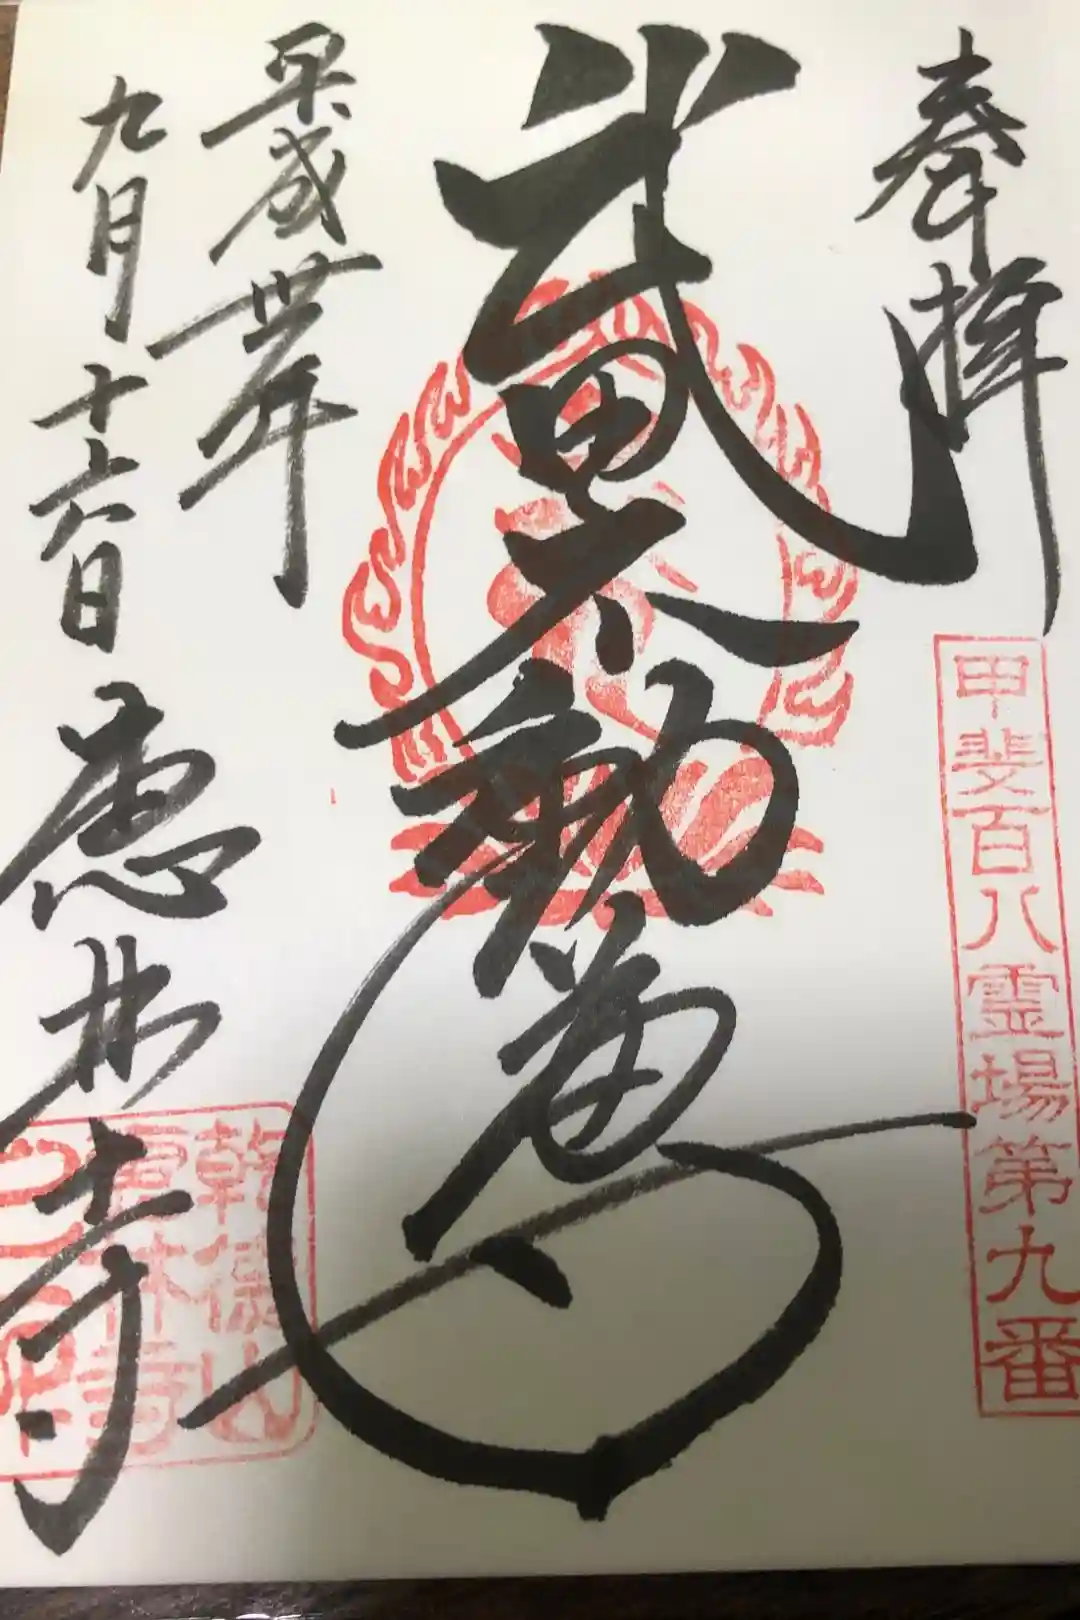 奉拝
甲斐百八霊場第九番
武田不動尊
平成卅年
九月十六日
恵林寺
乾徳山
恵林寺